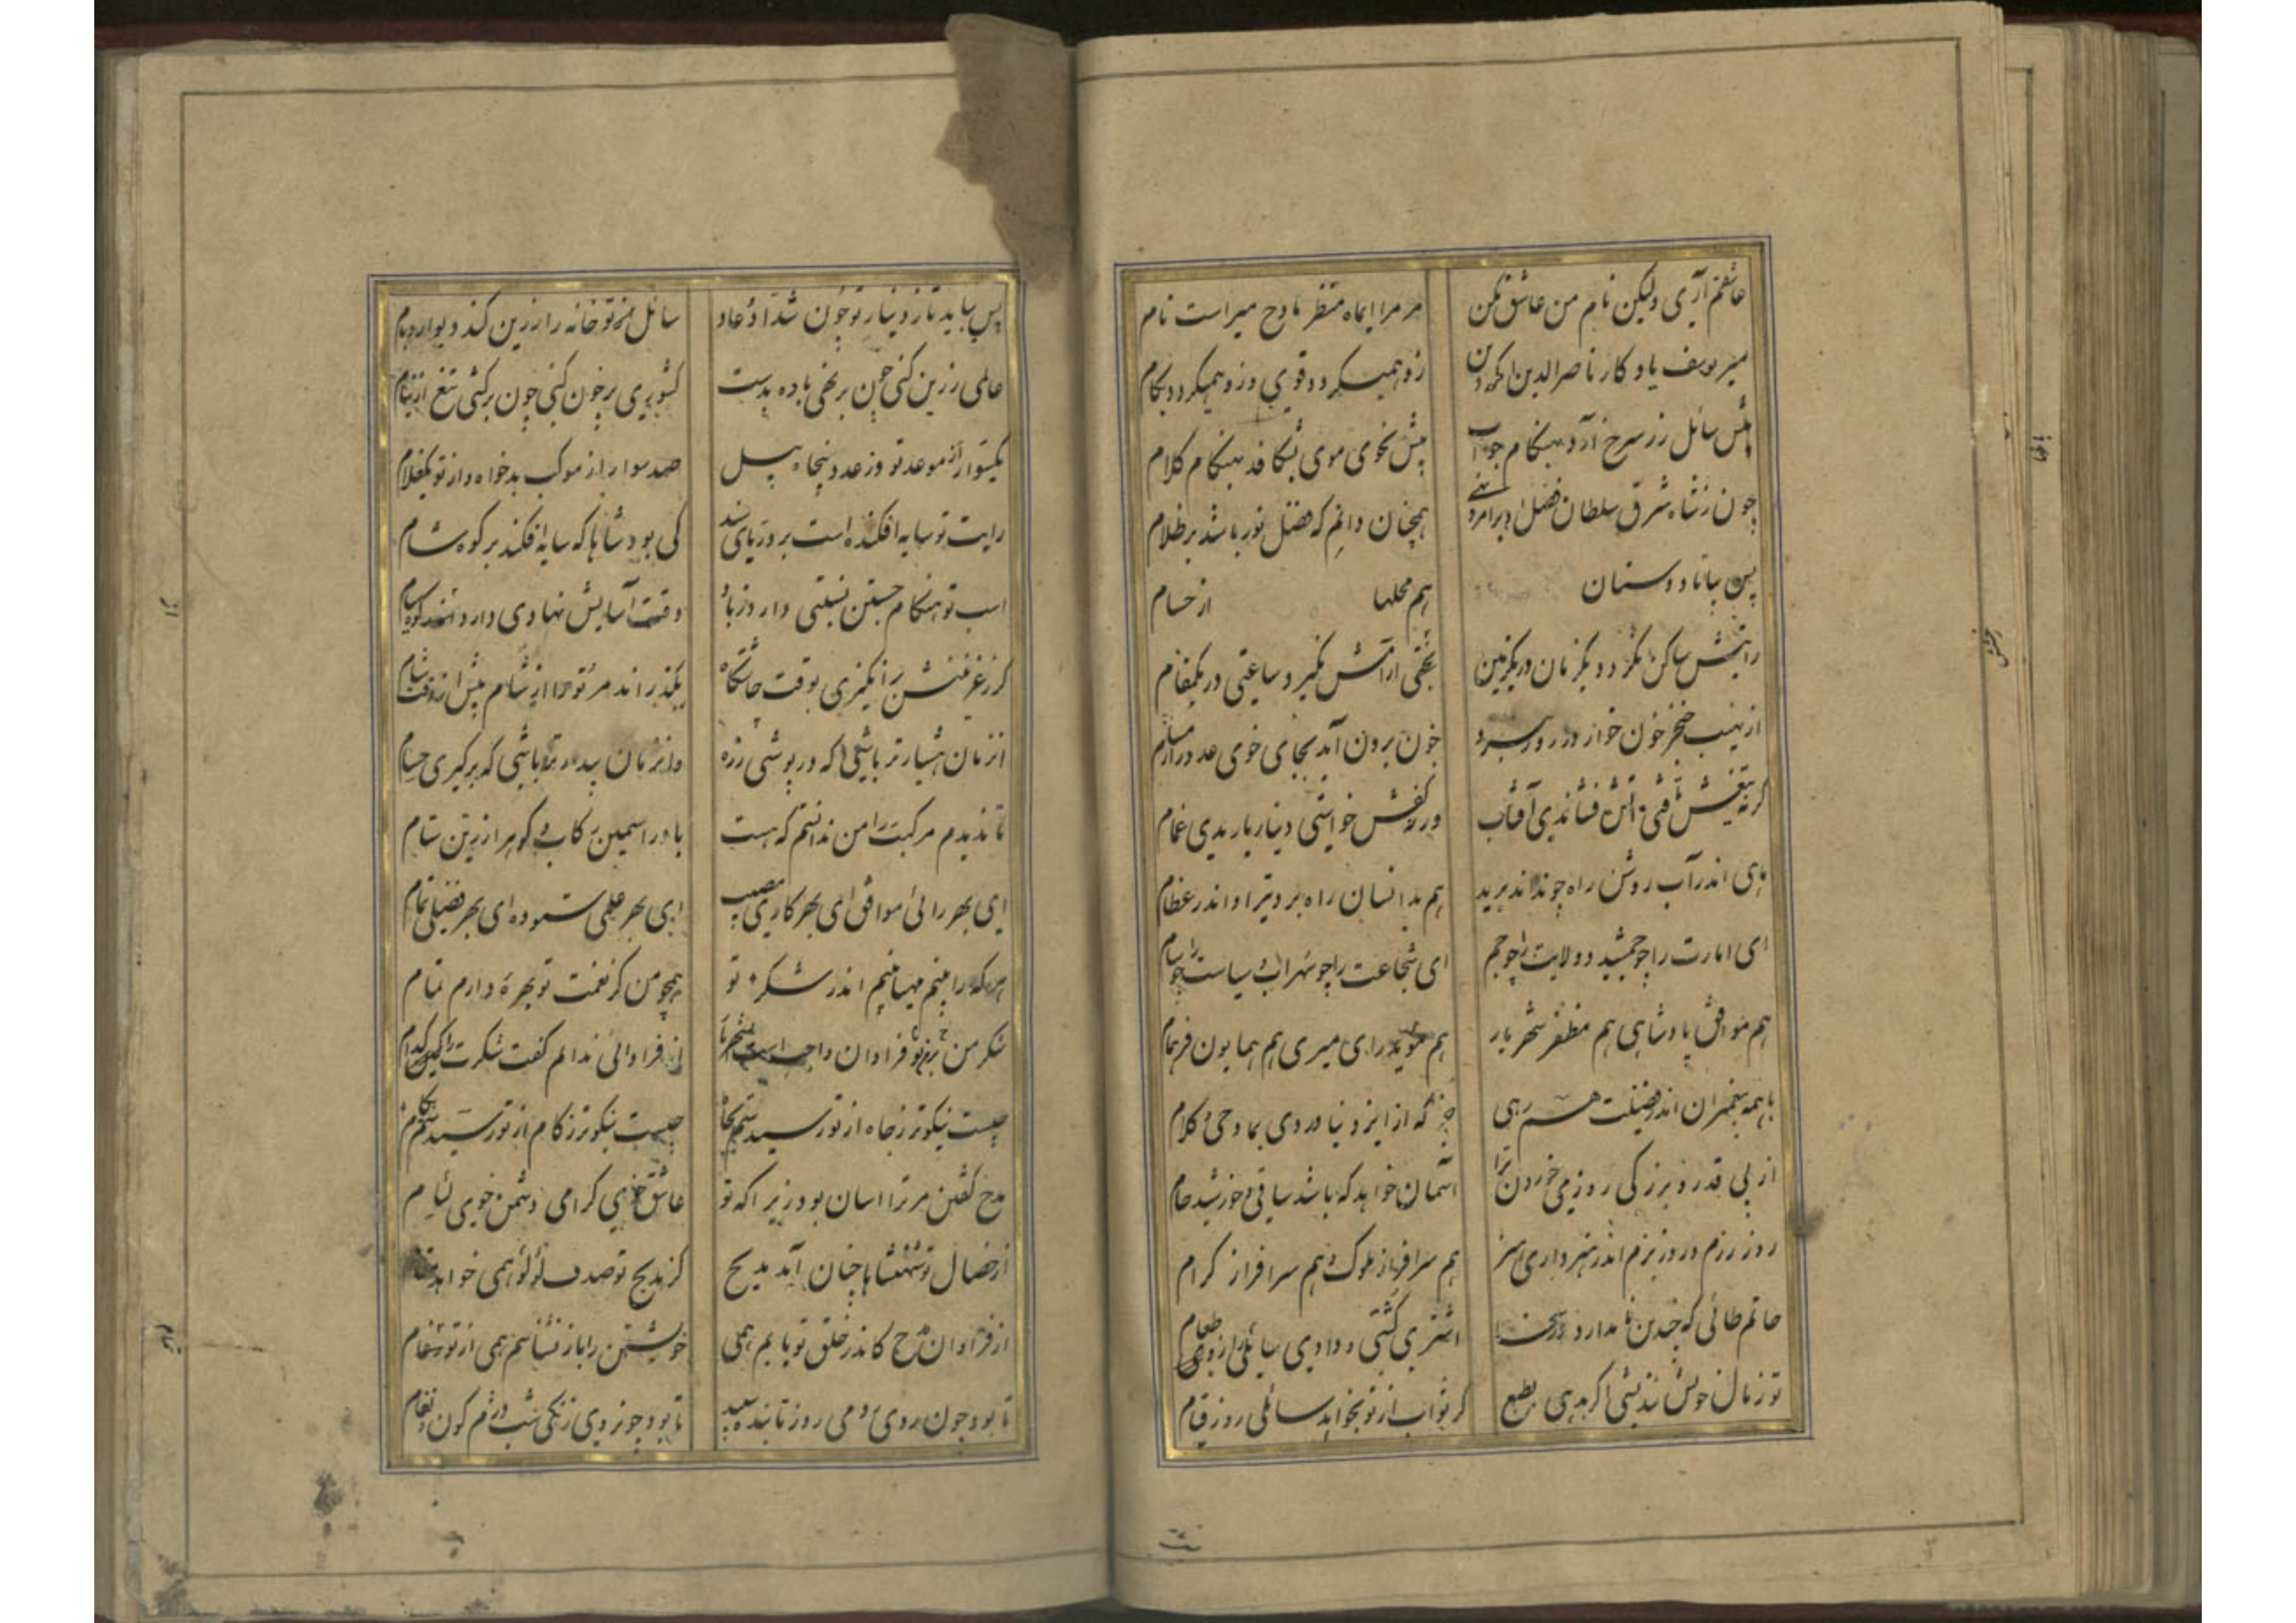 عاشقم آری ولیکن نام من عاشق مکن مر مرا ایماه منظر مادح میر است نام
میر یوسف یادکار ناصرالدین زو همیکردد قوی دین وزو همیکردد بکام
پیش سائل زر سرخ آرد بهنکام جواب پیش نحوی موی بشکافد بهنکام کلام
چون ز شاه شرق سلطان فضل او بر همچنان دانم که فضل نور باشد بر ظلام
دوستان هم محلها از حسام
ساکن نکردد یکزمان در یکزمین ارامش نکیرد ساعتی در یکمقام
از نهیب خنجر خون خوار او روز نبرد خون برون آید بجای خوی عدو را از مسام
کر نه تیغش آتش فشاندی آفتاب ور نه کفش خواستی دینار باریدی غمام
ماهی اندر آب روشن راه چونداند برید هم بدانسان راه برد تیر او اندر عظام
ای امارت را چو جمشید و ولایت را چو جم ای شجاعت را چو سهراب و سیاست را چو سام
هم موافق پادشاهی هم مظفر شهریار هم مؤید رای میری هم همایون فر همام
با همه پیغمبران اندر فضیلت همسری جز که از ایزد نیاوردی بما وحی و کلام
از پی قدر و بزرکی روز می خوردن ترا آسمان خواهد که باشد ساقی و خورشید جام
روز رزم و روز بزم اندر هنر داری هم سرافراز ملوک و هم سرافراز کرام
حاتم طائی که چندین نام دارد در سخا اشتری کشتی و دادی سائلی را زو طعام
تو زمال خویش بدهی بطبع کر ثواب از تو بخواهد سائلی روز قیام
پس بیاید تا ز دینار تو چون شداد و عاد سائل تو خانه را زرین کند دیوار و بام
عالمی زرین کنی چون بر نهی باده بدست کشوری پر خون کنی چون برکشی تیغ از نیام
یکسوار از موعد تو وز عدو پنجاه پیل صد سوار از موکب بدخواه و از تو یکغلام
رایت تو سایه افکنده است بر دریای سند کی بود شاها که سایه افکند بر کوه شام
اسب تو هنکام جستن نسبتی دارد ز باد وقت آسایش نهادی دارد
کر ز غزنینش برانکیزی بوقت چاشتکاه بکذراند مر ترا از شام پیش از وقت شام
از زمان هشیارتر باشی که در پوشی زره وانزمان بیدارتر باشی که برکیری حسام
تا ندیدم مرکبت را من ندانستم که هست باد را سیمین رکاب و کوه را زرین ستام
ای بهر رائی موافق ای بهر کاری مصیب ای بهر علمی ستوده ای بهر فضلی تمام
هر که را بینم همی بینم اندر شکر تو همچو من کز نعمت تو بهره دارم تمام
شکر من بر تو فراوان واجب است از فراوانی ندانم کفت شکرت را کدام
چیست نیکوتر ز جاه از تو رسیدستم بجاه چیست نیکوتر ز کام از تو رسیدستم بکام
مدح کفتن مر ترا اسان بود زیرا که تو عاشق خوی کرامی دشمن خوی لئام
از خصال تو شهنشاها چنان آید مدیح کز مدیح تو صدف لؤلؤ همی خواهد
از فراوان مدح کاندر خلق تو یابم همی خویشتن را باز نشناسم همی از
تا بود چون روی رومی روز تابنده سپید تا بود چون روی زنکی شب دژم کون